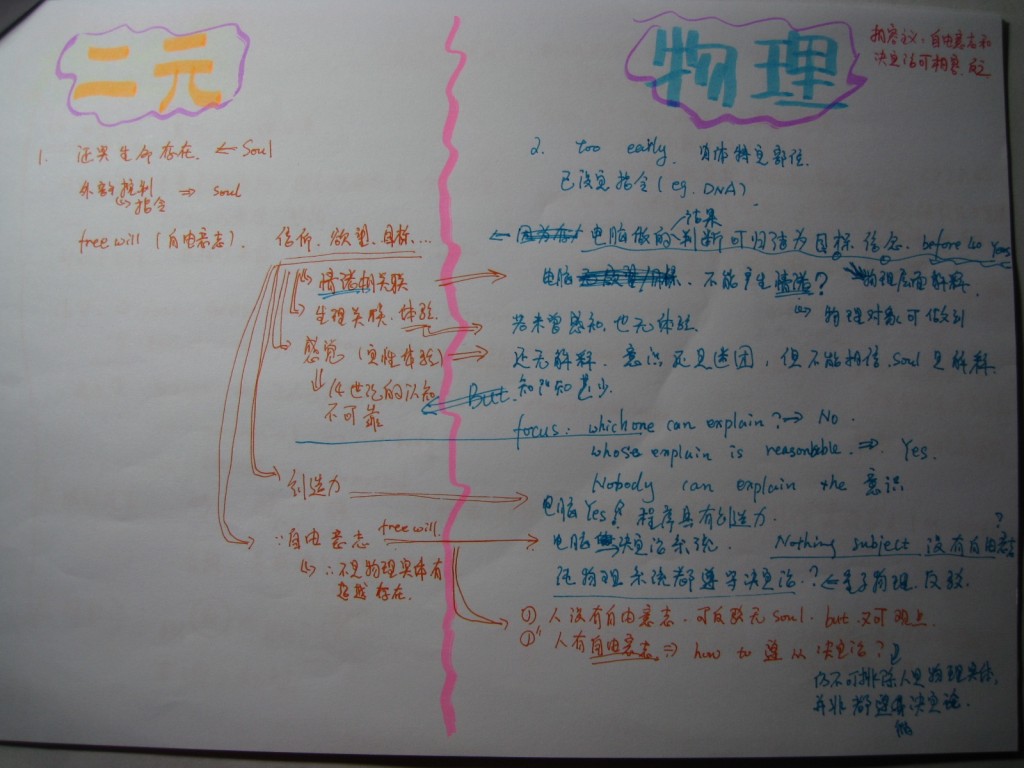 二元
物理
相容议：自由意志和
决定论可相容.
1. 证实生命存在. ← Soul
2. too early. 身体特定部位.
外部控制 ⇒ soul
↳ 指令
已设定指令 (eg. DNA)
free will (自由意志). 信仰. 欲望. 目标...
结果
← 电脑做的判断可归结为目标 信念. before 40 years
↳ 情绪相关联 →
电脑 不能产生情绪? 物理层面解释.
↳ 物理对象可做到
↳ 生理关联. 体验. →
若未曾感知. 也无体验
↳ 感觉 (定性体验) →
还无解释. 意识还是谜团, 但不能相信. soul 是解释
知们知甚少.
↳ 14世纪的认知
不可靠
But.
focus: which one can explain? → No.
whose explain is reasonable. ⇒ Yes.
Nobody can explain the 意识
创造力 →
电脑 Yes! 程序具有创造力.
∵ 自由意志 free will →
电脑 决定论系统. Nothing subject 没有自由意志?
↳ ∴不是物理实体有
超越存在.
物理系统都遵守决定论.? ← 量子物理. 反驳.
① 人没有自由意志. 可反驳无 soul. but 又可观点.
② 人有自由意志 ⇒ how to 遵从决定论?
仍不可排除人是物理实体,
并非都遵 决定论.